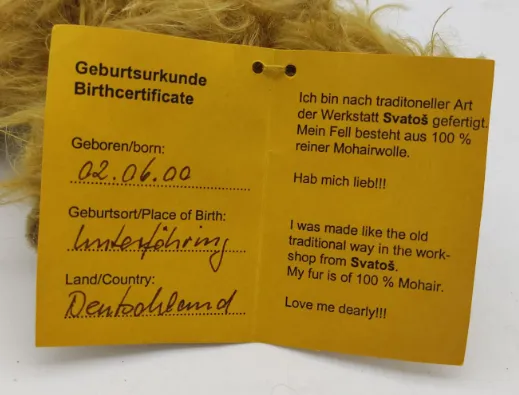 Geburtsurkunde
Birthcertificate
Geboren/born:
02.06.00
Geburtsort/Place of Birth:
Unterföhring
Land/Country:
Deutschland
Ich bin nach traditoneller Art
der Werkstatt Svatoš gefertigt.
Mein Fell besteht aus 100 %
reiner Mohairwolle.
Hab mich lieb!!!
I was made like the old
traditional way in the work-
shop from Svatoš.
My fur is of 100 % Mohair.
Love me dearly!!!